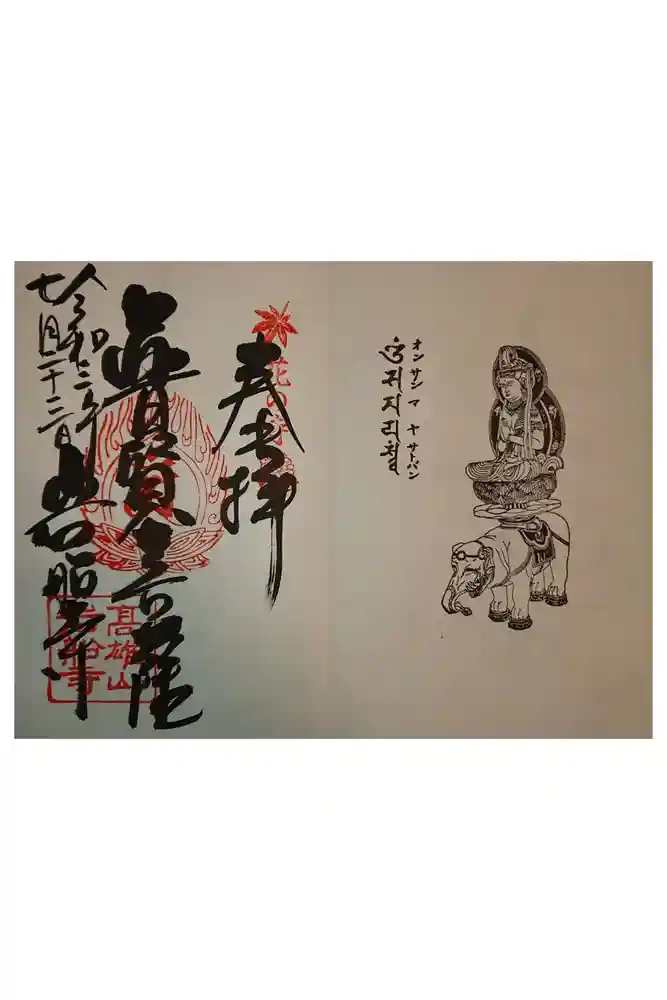 オン サン マ ヤ サトバン
奉拝
花の寺
普賢菩薩
令和二年
七月二十三日
岩船寺
高雄山
岩船寺